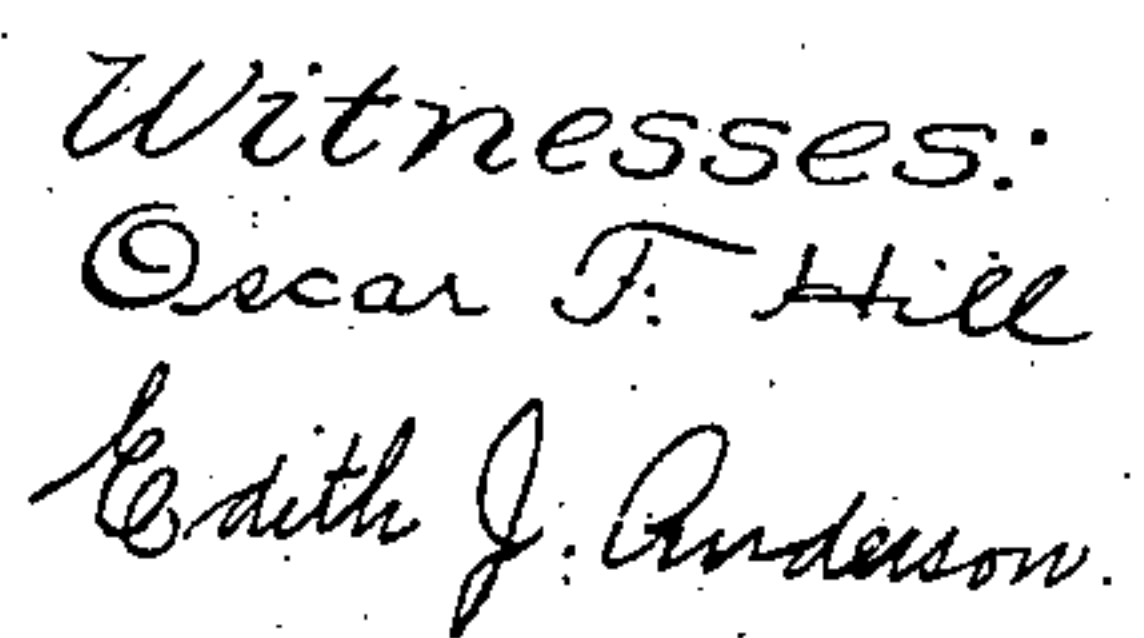 Witnesses:
Oscar F. Hill
Edith J. Anderson.